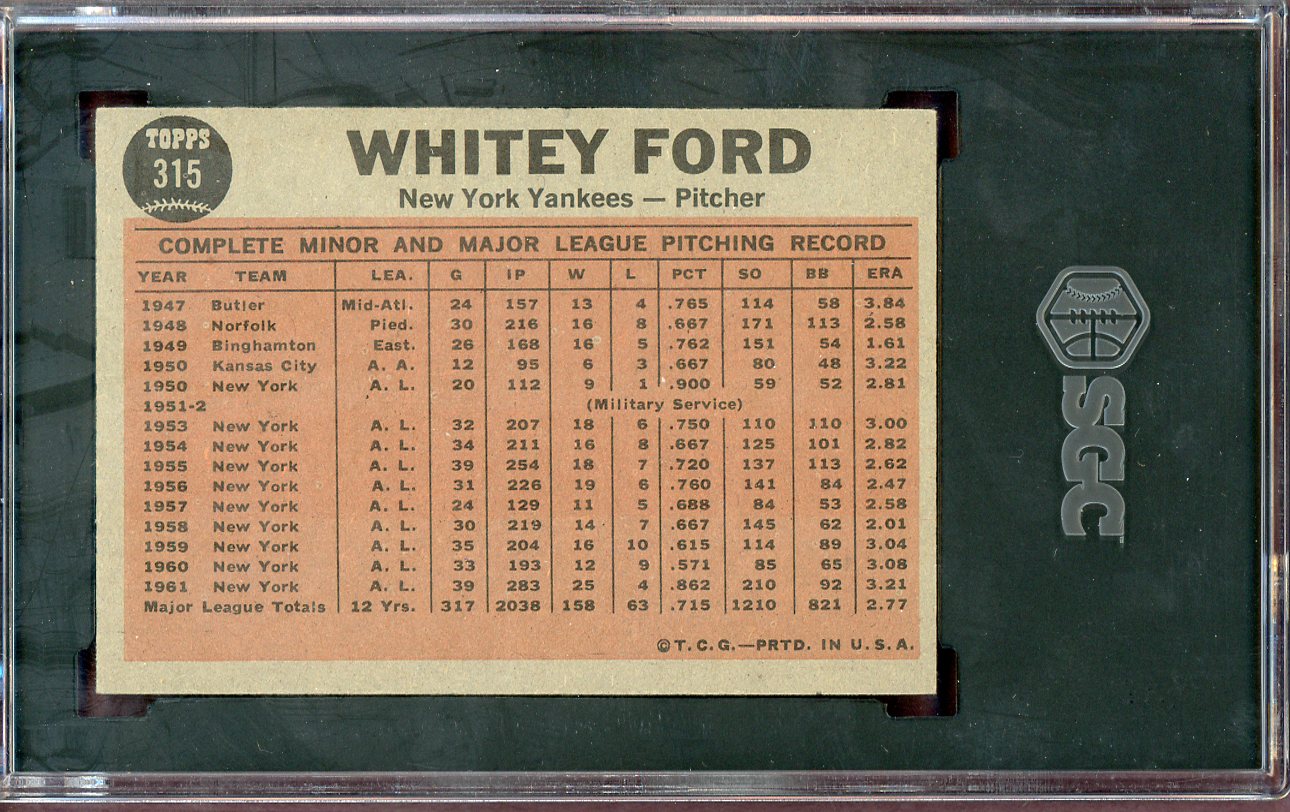 TOPPS
315
WHITEY FORD
New York Yankees — Pitcher
COMPLETE MINOR AND MAJOR LEAGUE PITCHING RECORD
YEAR TEAM LEA. G IP W L PCT SO BB ERA
1947 Butler Mid-Atl. 24 157 13 4 .765 114 58 3.84
1948 Norfolk Pied. 30 216 16 8 .667 171 113 2.58
1949 Binghamton East. 26 168 16 5 .762 151 54 1.61
1950 Kansas City A. A. 12 95 6 3 .667 80 48 3.22
1950 New York A. L. 20 112 9 1 .900 59 52 2.81
1951-2 (Military Service)
1953 New York A. L. 32 207 18 6 .750 110 110 3.00
1954 New York A. L. 34 211 16 8 .667 125 101 2.82
1955 New York A. L. 39 254 18 7 .720 137 113 2.62
1956 New York A. L. 31 226 19 6 .760 141 84 2.47
1957 New York A. L. 24 129 11 5 .688 84 53 2.58
1958 New York A. L. 30 219 14 7 .667 145 62 2.01
1959 New York A. L. 35 204 16 10 .615 114 89 3.04
1960 New York A. L. 33 193 12 9 .571 85 65 3.08
1961 New York A. L. 39 283 25 4 .862 210 92 3.21
Major League Totals 12 Yrs. 317 2038 158 63 .715 1210 821 2.77
©T.C.G.—PRTD. IN U.S.A.
SGC